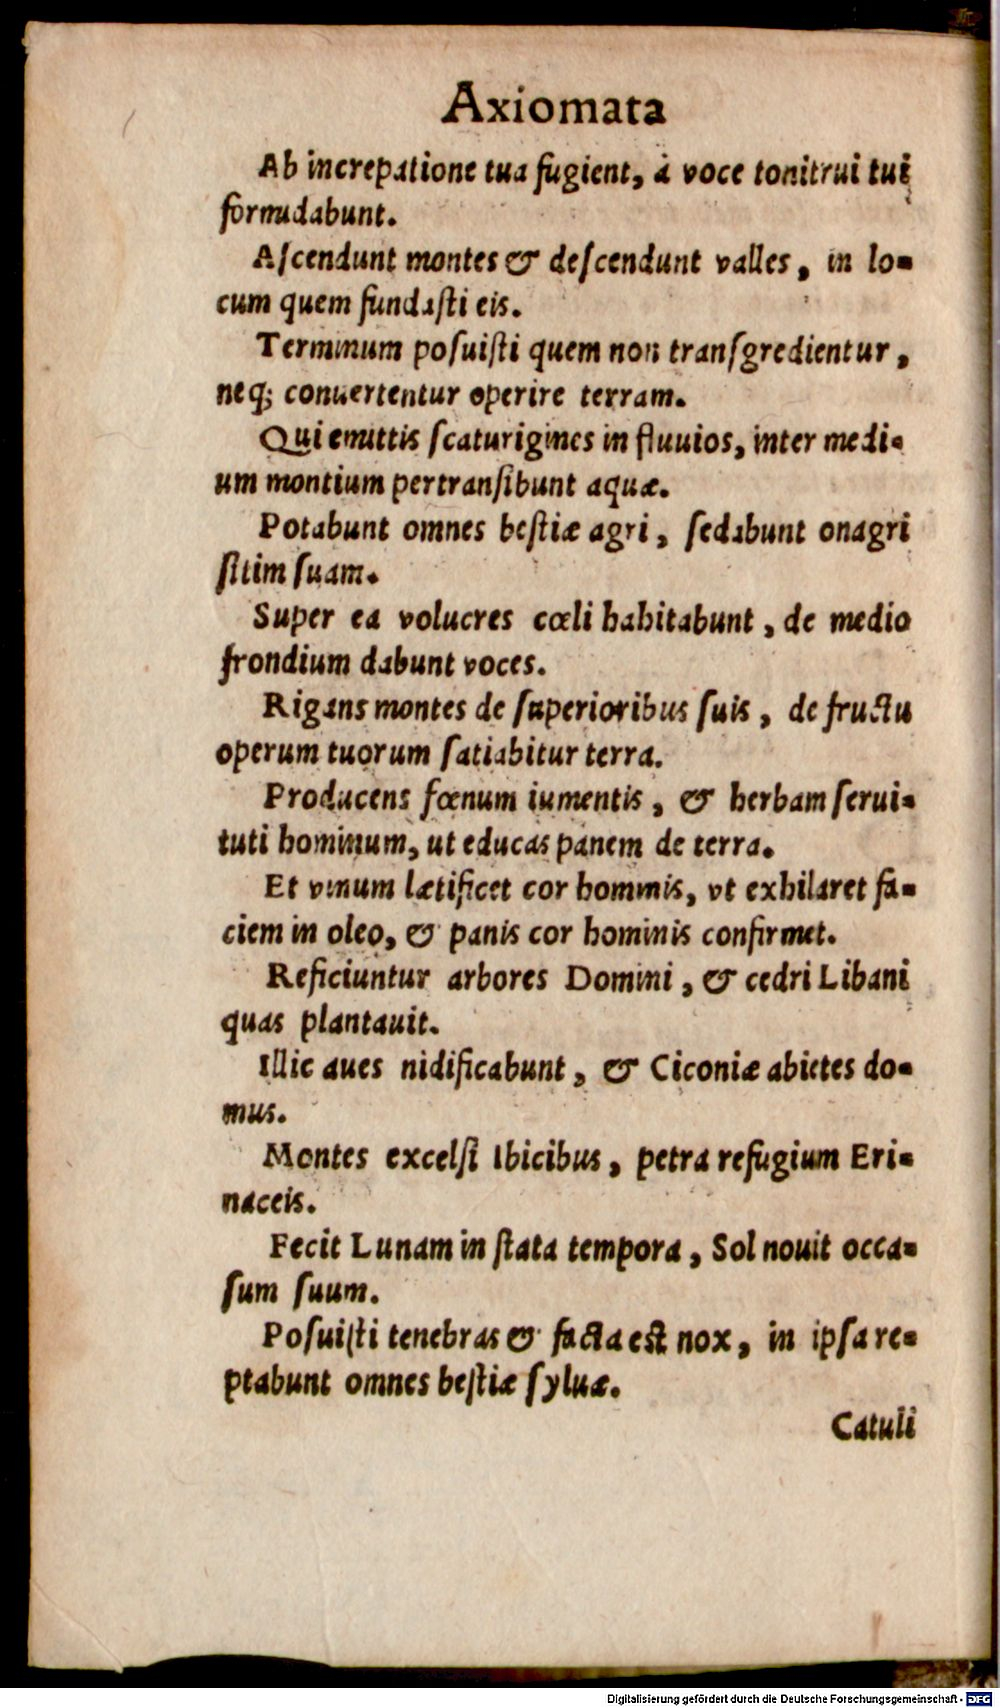 Axiomata
Ab increpatione tua fugient, à voce tonitrui tui
formidabunt.
Ascendunt montes & descendunt valles, in lo-
cum quem fundasti eis.
Terminum posuisti quem non transgredientur,
neq; conuertentur operire terram.
Qui emittis scaturigines in fluuios, inter medi-
um montium pertransibunt aquæ.
Potabunt omnes bestiæ agri, sedabunt onagri
sitim suam.
Super ea volucres cœli habitabunt, de medio
frondium dabunt voces.
Rigans montes de superioribus suis, de fructu
operum tuorum satiabitur terra.
Producens fœnum iumentis, & herbam serui-
tuti hominum, ut educas panem de terra.
Et vinum lætificet cor hominis, vt exhilaret fa-
ciem in oleo, & panis cor hominis confirmet.
Reficiuntur arbores Domini, & cedri Libani
quas plantauit.
Illic aues nidificabunt, & Ciconiæ abietes do-
mus.
Montes excelsi Ibicibus, petra refugium Eri-
naceis.
Fecit Lunam in stata tempora, Sol nouit occa-
sum suum.
Posuisti tenebras & facta est nox, in ipsa re-
ptabunt omnes bestiæ syluæ.
Catuli
Digitalisierung gefördert durch die Deutsche Forschungsgemeinschaft - DFG